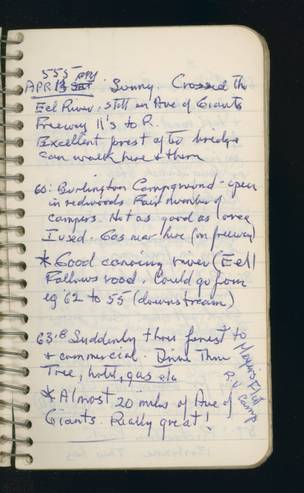 555
APR 13 Sunny. Crossed the
Eel River. still on Ave of Giants
Freeway 11's to R.
Excellent forest after bridge
can walk here & there
60: Burlington Campground - open
in redwoods. Fair number of
campers. Not as good as area
I used. Gas near here (on freeway)
* Good canoeing river (Eel)
Follows road. Could go from
eg 62 to 55 (downstream)
63.8 Suddenly thru forest to
& commercial. Drive Thru
Tree, hotel, gas etc
Meyers Flat
R.V. Camp
* Almost 20 miles of Ave of
Giants. Really great!